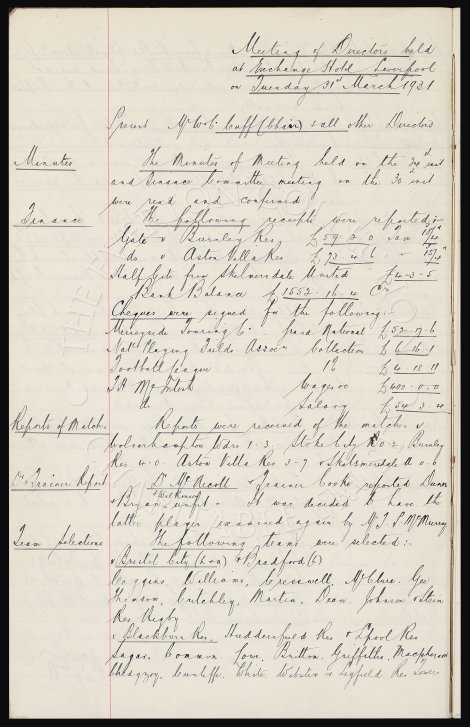 Meeting of Directors held
at Exchange Hotel Liverpool
on Tuesday 31st March 1931
Present Mr W.C. Cuff (Chair) + all other Directors
Minutes The Minutes of Meeting held on the inst
and Finance Committee meeting on the 30th inst
were read and confirmed
Finance The following receipts were reported:-
Gate v Burnley Res £59 2 0 Tax
do v Aston Villa Res £ 73 4 6
Half Gate from Skelmersdale United £4-3-5
Bank Balance £1552. 16. 4 Cr
Cheques were signed for the following:-
Merseyside Touring Co. Grand National £52.17.6
Nat. Playing Fields Assoc Collection £6.16.1
Football League 1% £4.13.11
T.H. McIntosh Wages £400.0.0
do Salary £54.3.4
Reports of Matches Reports were received of the matches v
Wolverhampton Wdrs 1-3. Stoke City 0-2, Burnley
Res 4-0. Aston Villa Res 3-7 & Skelmersdale U 0-6
Dr & Trainer Report Dr McNicoll & Trainer Cooke reported Dunn
& Bryan Unfit. It was decided to have the
latter player examined again by Mr T.P. McMurray
Team Selections The following teams were selected:-
v Bristol City (home) & Bradford (C)
Coggins, Williams, Cresswell, McClure, Gee,
Thomson, Critchley, Martin, Dean, Johnson & Stein
Res. Rigby
v Blackburn Res, Huddersfield Res & L'pool Res
Sagar, Common, Lowe, Britton, Griffiths, Macpherson
Chedgzoy, Cunliffe, White, Webster & Leyfield Res